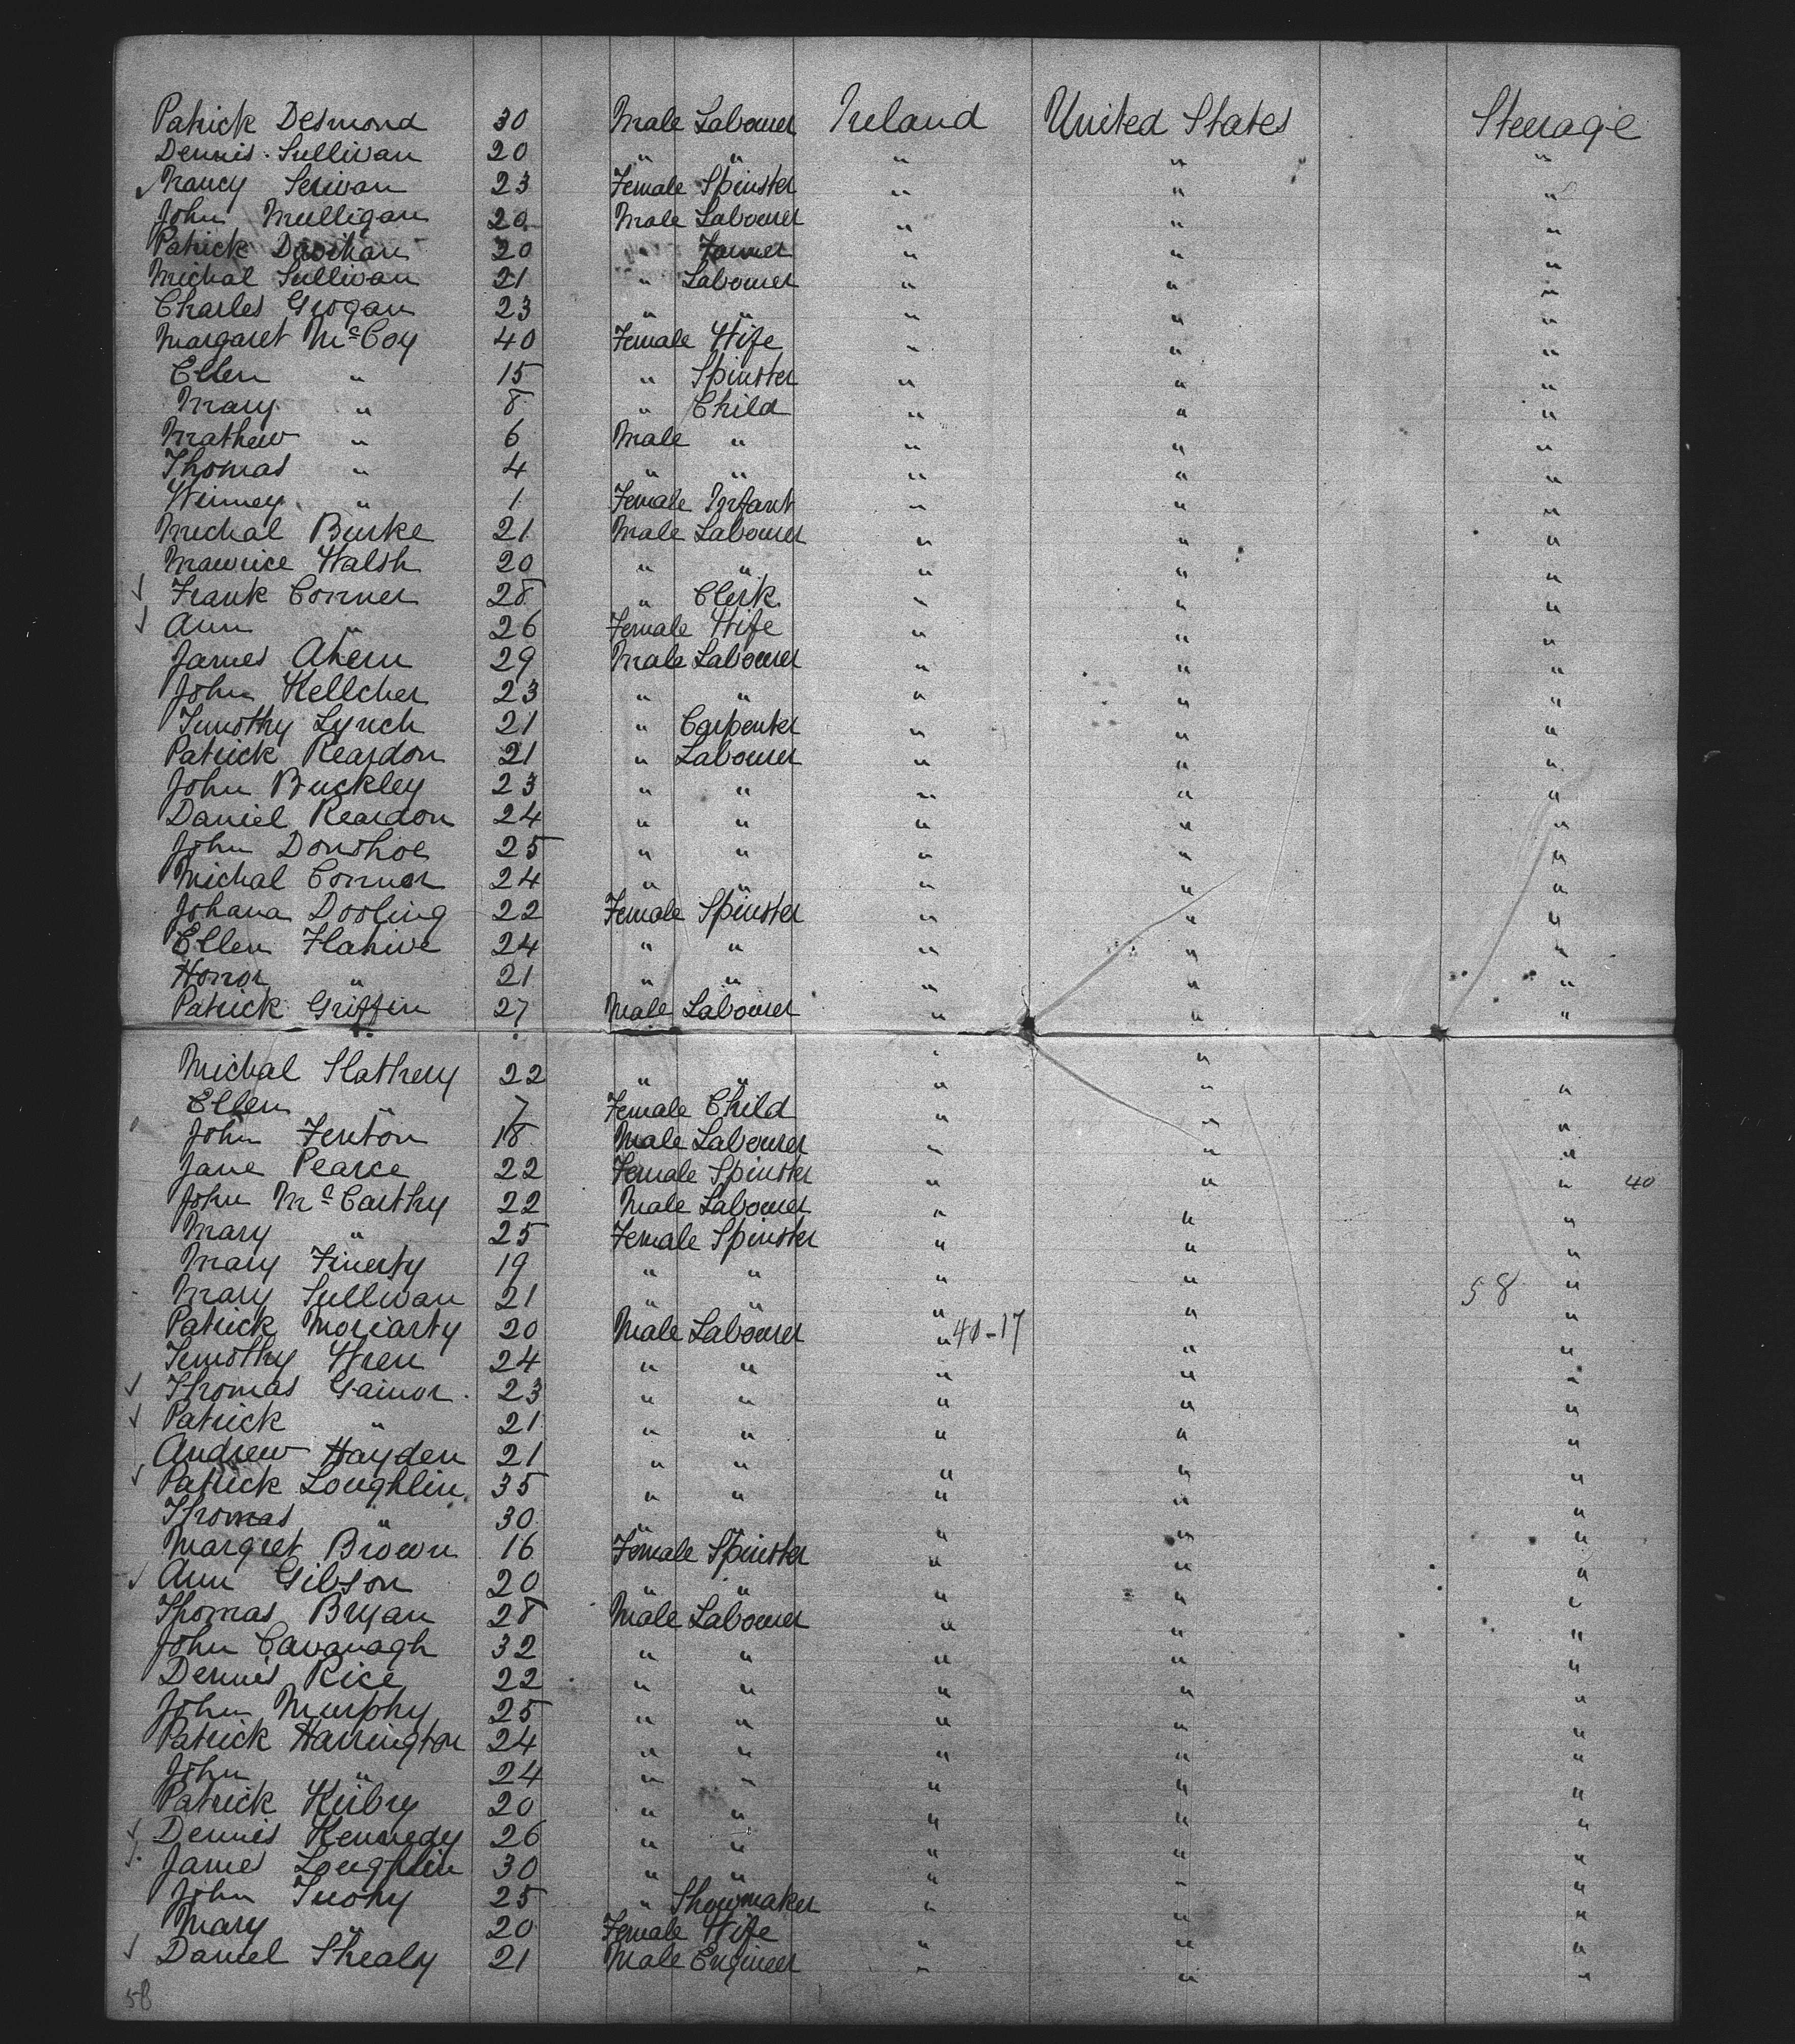 Patrick Desmond 30 Male Labourer Ireland United States Steerage
Dennis Sullivan 20 " " " " "
✓ Nancy Serivan 23 Female Spinster " " "
John Mulligan 20 Male Labourer " " "
Patrick 20 " Farmer " " "
Michal Sullivan 21 " Labourer " " "
Charles Grogan 23 " " " " "
Margaret McCoy 40 Female Wife " " "
Ellen " 15 " Spinster " " "
Mary " 8 " Child " " "
Mathew " 6 Male " " " "
Thomas " 4 " " " " "
Winney " 1 Female Infant " " "
Michal Burke 21 Male Labourer " " "
Maurice Walsh 20 " " " " "
✓ Frank Conner 28 " Clerk " " "
✓ Ann " 26 Female Wife " " "
James Ahern 29 Male Labourer " " "
John Kellcher 23 " " " " "
Timothy Lynch 21 " Carpenter " " "
Patrick Reardon 21 " Labourer " " "
John Buckley 23 " " " " "
Daniel Reardon 24 " " " " "
John Donohoe 25 " " " " "
Michal Connor 24 " " " " "
Johana Dooling 22 Female Spinster " " "
Ellen Flahive 24 " " " " "
Honor " 21 " " " " "
Patrick Griffin 27 Male Labourer " " "
Michal Slathery 22 " " " " "
Ellen " 7 Female Child " " "
John Fenton 18 Male Labourer " " "
Jane Pearce 22 Female Spinster " " " 40
John McCarthy 22 Male Labourer " " "
Mary " 25 Female Spinster " " "
Mary Finerty 19 " " " " 58 "
Mary Sullivan 21 " " " " "
Patrick Moriarty 20 Male Labourer " 41-17 " "
Timothy Wren 24 " " " " "
✓ Thomas Gainor 23 " " " " "
✓ Patrick " 21 " " " " "
Andrew Hayden 21 " " " " "
✓ Patrick Loughlin 35 " " " " "
Thomas " 30 " " " "
Margret Brown 16 Female Spinster " " "
✓ Ann Gibson 20 " " " " "
Thomas Bryan 28 Male Labourer " " "
John Cavanagh 32 " " " " "
Dennis Rice 22 " " " " "
John Murphy 25 " " " " "
Patrick Harrington 24 " " " " "
John " 24 " " " " "
Patrick Kirbry 20 " " " " "
✓ Dennis Kennedy 26 " " " " "
✓ James Loughlin 30 " " " " "
John Tuohy 25 " Showmaker " " "
Mary " 20 Female Wife " " "
✓ Daniel Shealy 21 Male Engineer " " "
58